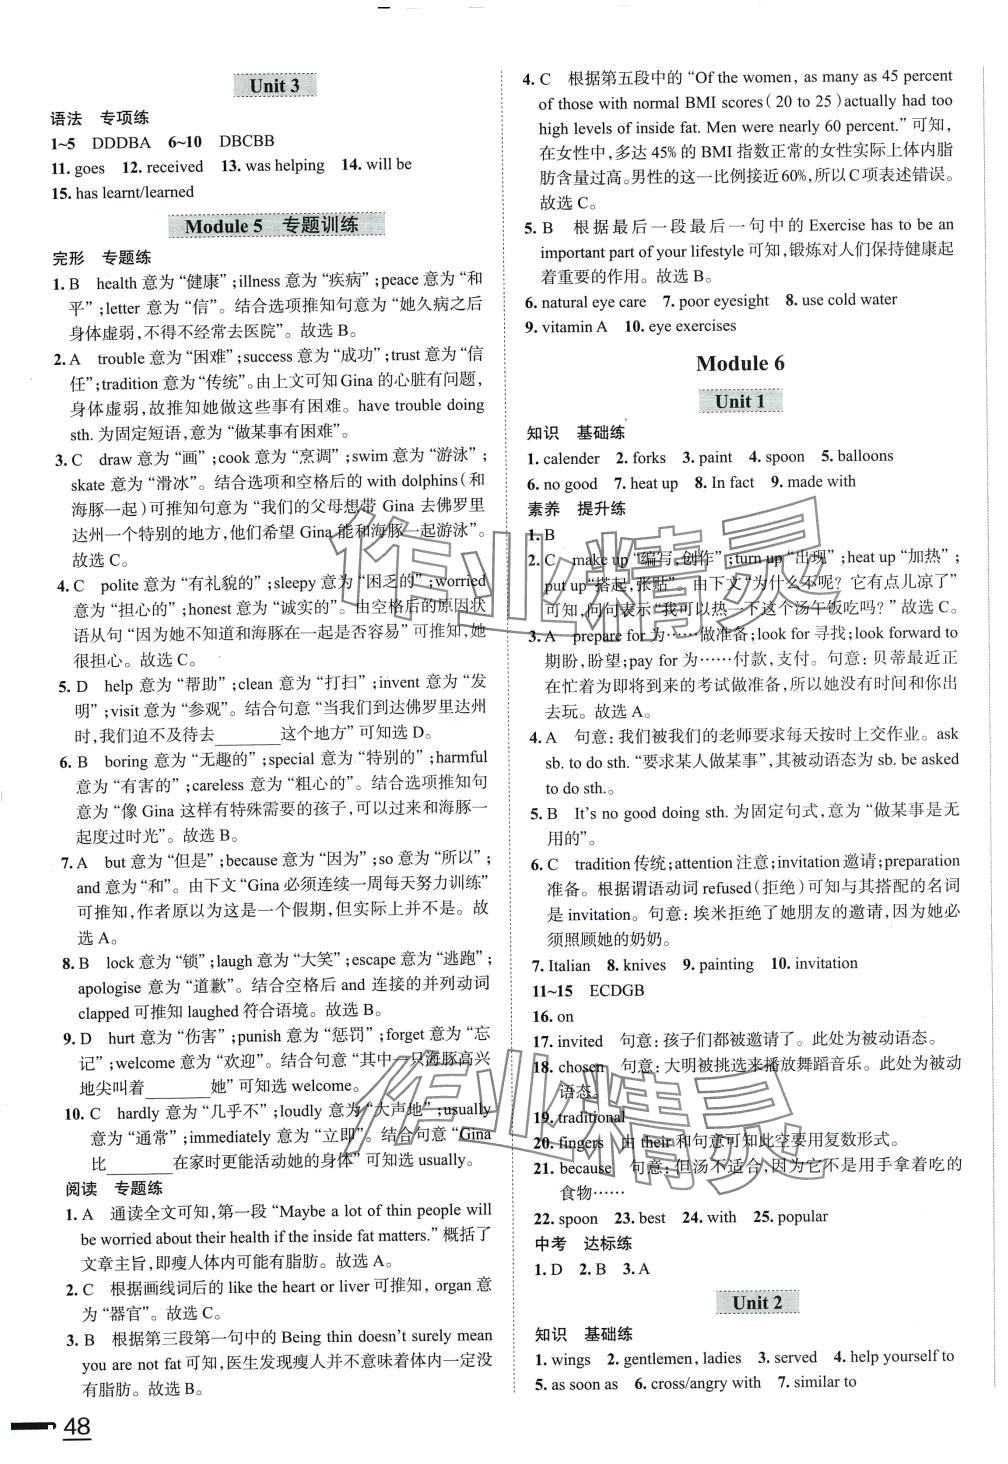 Unit 3
语法　专项练
1~5　DDDBA　6~10　DBCBB
11. goes　12. received　13. was helping　14. will be
15. has learnt/learned
Module 5　专题训练
完形　专题练
1. B　health 意为“健康”;illness 意为“疾病”;peace意为“和
平”;letter 意为“信”。结合选项推知句意为“她久病之后
身体虚弱,不得不经常去医院”。故选 B。
2. A　trouble 意为“困难”;success 意为“成功”;trust 意为“信
任”;tradition 意为“传统”。由上文可知 Gina 的心脏有问题,
身体虚弱,故推知她做这些事有困难。have trouble doing
sth. 为固定短语,意为“做某事有困难”。
3. C　draw 意为“画”;cook 意为“烹调”;swim 意为“游泳”;
skate 意为“滑冰”。结合选项和空格后的 with dolphins(和
海豚一起)可推知句意为“我们的父母想带 Gina 去佛罗里
达州一个特别的地方,他们希望 Gina 能和海豚一起游泳”。
故选 C。
4. C　polite 意为“有礼貌的”;sleepy 意为“困乏的”;worried
意为“担心的”;honest 意为“诚实的”。由空格后的原因状
语从句“因为她不知道和海豚在一起是否容易”可知,她
很担心。故选 C。
5. D　help 意为“帮助”;clean 意为“打扫”;invent 意为“发
明”;visit 意为“参观”。结合句意“当我们到达佛罗里达州
时,我们迫不及待去________这个地方”可知选 D。
6. B　boring 意为“无趣的”;special 意为“特别的”;harmful
意为“有害的”;careless 意为“粗心的”。结合选项推知句
意为“像 Gina 这样有特殊需要的孩子,可以过来和海豚一
起度过时光”。故选 B。
7. A　but 意为“但是”;because 意为“因为”;so 意为“所以”;
and 意为“和”。由下文“Gina 必须连续一周每天努力训练”
可推知,作者原以为这是一个假期,但实际上并不是。故
选 A。
8. B　lock 意为“锁”;laugh 意为“大笑”;escape 意为“逃跑”;
apologise 意为“道歉”。结合空格后 and 连接的并列动词
clapped 可推知 laughed 符合语境。故选 B。
9. D　hurt 意为“伤害”;punish 意为“惩罚”;forget 意为“忘
记”;welcome 意为“欢迎”。结合句意“其中一只海豚高兴
地尖叫着________她”可知选 welcome。
10. C　hardly 意为“几乎不”;loudly 意为“大声地”;usually
意为“通常”;immediately 意为“立即”。结合句意“Gina
比________在家时更能活动她的身体”可知选 usually。
阅读　专题练
1. A　通读全文可知,第一段“Maybe a lot of thin people will
be worried about their health if the inside fat matters.”概括了
文章主旨,即瘦人体内可能有脂肪。故选 A。
2. C　根据画线词后的 like the heart or liver 可推知, organ 意
为“器官”。故选 C。
3. B　根据第三段第一句中的 Being thin doesn't surely mean
you are not fat 可知,医生发现瘦人并不意味着体内一定没
有脂肪。故选 B。
48
4. C　根据第五段中的“Of the women, as many as 45 percent
of those with normal BMI scores(20 to 25)actually had too
high levels of inside fat. Men were nearly 60 percent.”可知,
在女性中,多达 45% 的 BMI 指数正常的女性实际上体内脂
肪含量过高。男性的这一比例接近60%,所以C项表述错误。
故选 C。
5. B　根据最后一段最后一句中的 Exercise has to be an
important part of your lifestyle 可知,锻炼对人们保持健康起
着重要的作用。故选 B。
6. natural eye care　7. poor eyesight　8. use cold water
9. vitamin A　10. eye exercises
Module 6
Unit 1
知识　基础练
1. calender　2. forks　3. paint　4. spoon　5. balloons
6. no good　7. heat up　8. In fact　9. made with
素养　提升练
1. B
2. C　make up“编写,创作”;turn up“出现”;heat up“加热”;
put up“搭起,张贴”。由下文“为什么不呢？它有点儿凉了”
可知,问句表示“我可以热一下这个汤午饭吃吗？”故选 C。
3. A　prepare for 为……做准备;look for 寻找;look forward to
期盼,盼望;pay for 为……付款,支付。句意:贝蒂最近正
在忙着为即将到来的考试做准备,所以她没有时间和你出
去玩。故选 A。
4. A　句意:我们被我们的老师要求每天按时上交作业。ask
sb. to do sth.“要求某人做某事”,其被动语态为 sb. be asked
to do sth.。
5. B　It's no good doing sth. 为固定句式,意为“做某事是无
用的”。
6. C　tradition传统;attention 注意;invitation邀请;preparation
准备。根据谓语动词 refused(拒绝)可知与其搭配的名词
是 invitation。句意:埃米拒绝了她朋友的邀请,因为她必
须照顾她的奶奶。
7. Italian　8. knives　9. painting　10. invitation
11~15　ECDGB
16. on
17. invited　句意:孩子们都被邀请了。此处为被动语态。
18. chosen　句意:大明被挑选来播放舞蹈音乐。此处为被动
语态。
19. traditional
20. fingers　由 their 和句意可知此空要用复数形式。
21. because　句意:但汤不适合,因为它不是用手拿着吃的
食物……
22. spoon　23. best　24. with　25. popular
中考　达标练
1. D　2. B　3. A
Unit 2
知识　基础练
1. wings　2. gentlemen, ladies　3. served　4. help yourself to
5. as soon as　6. cross/angry with　7. similar to
作业精灵
作业精灵